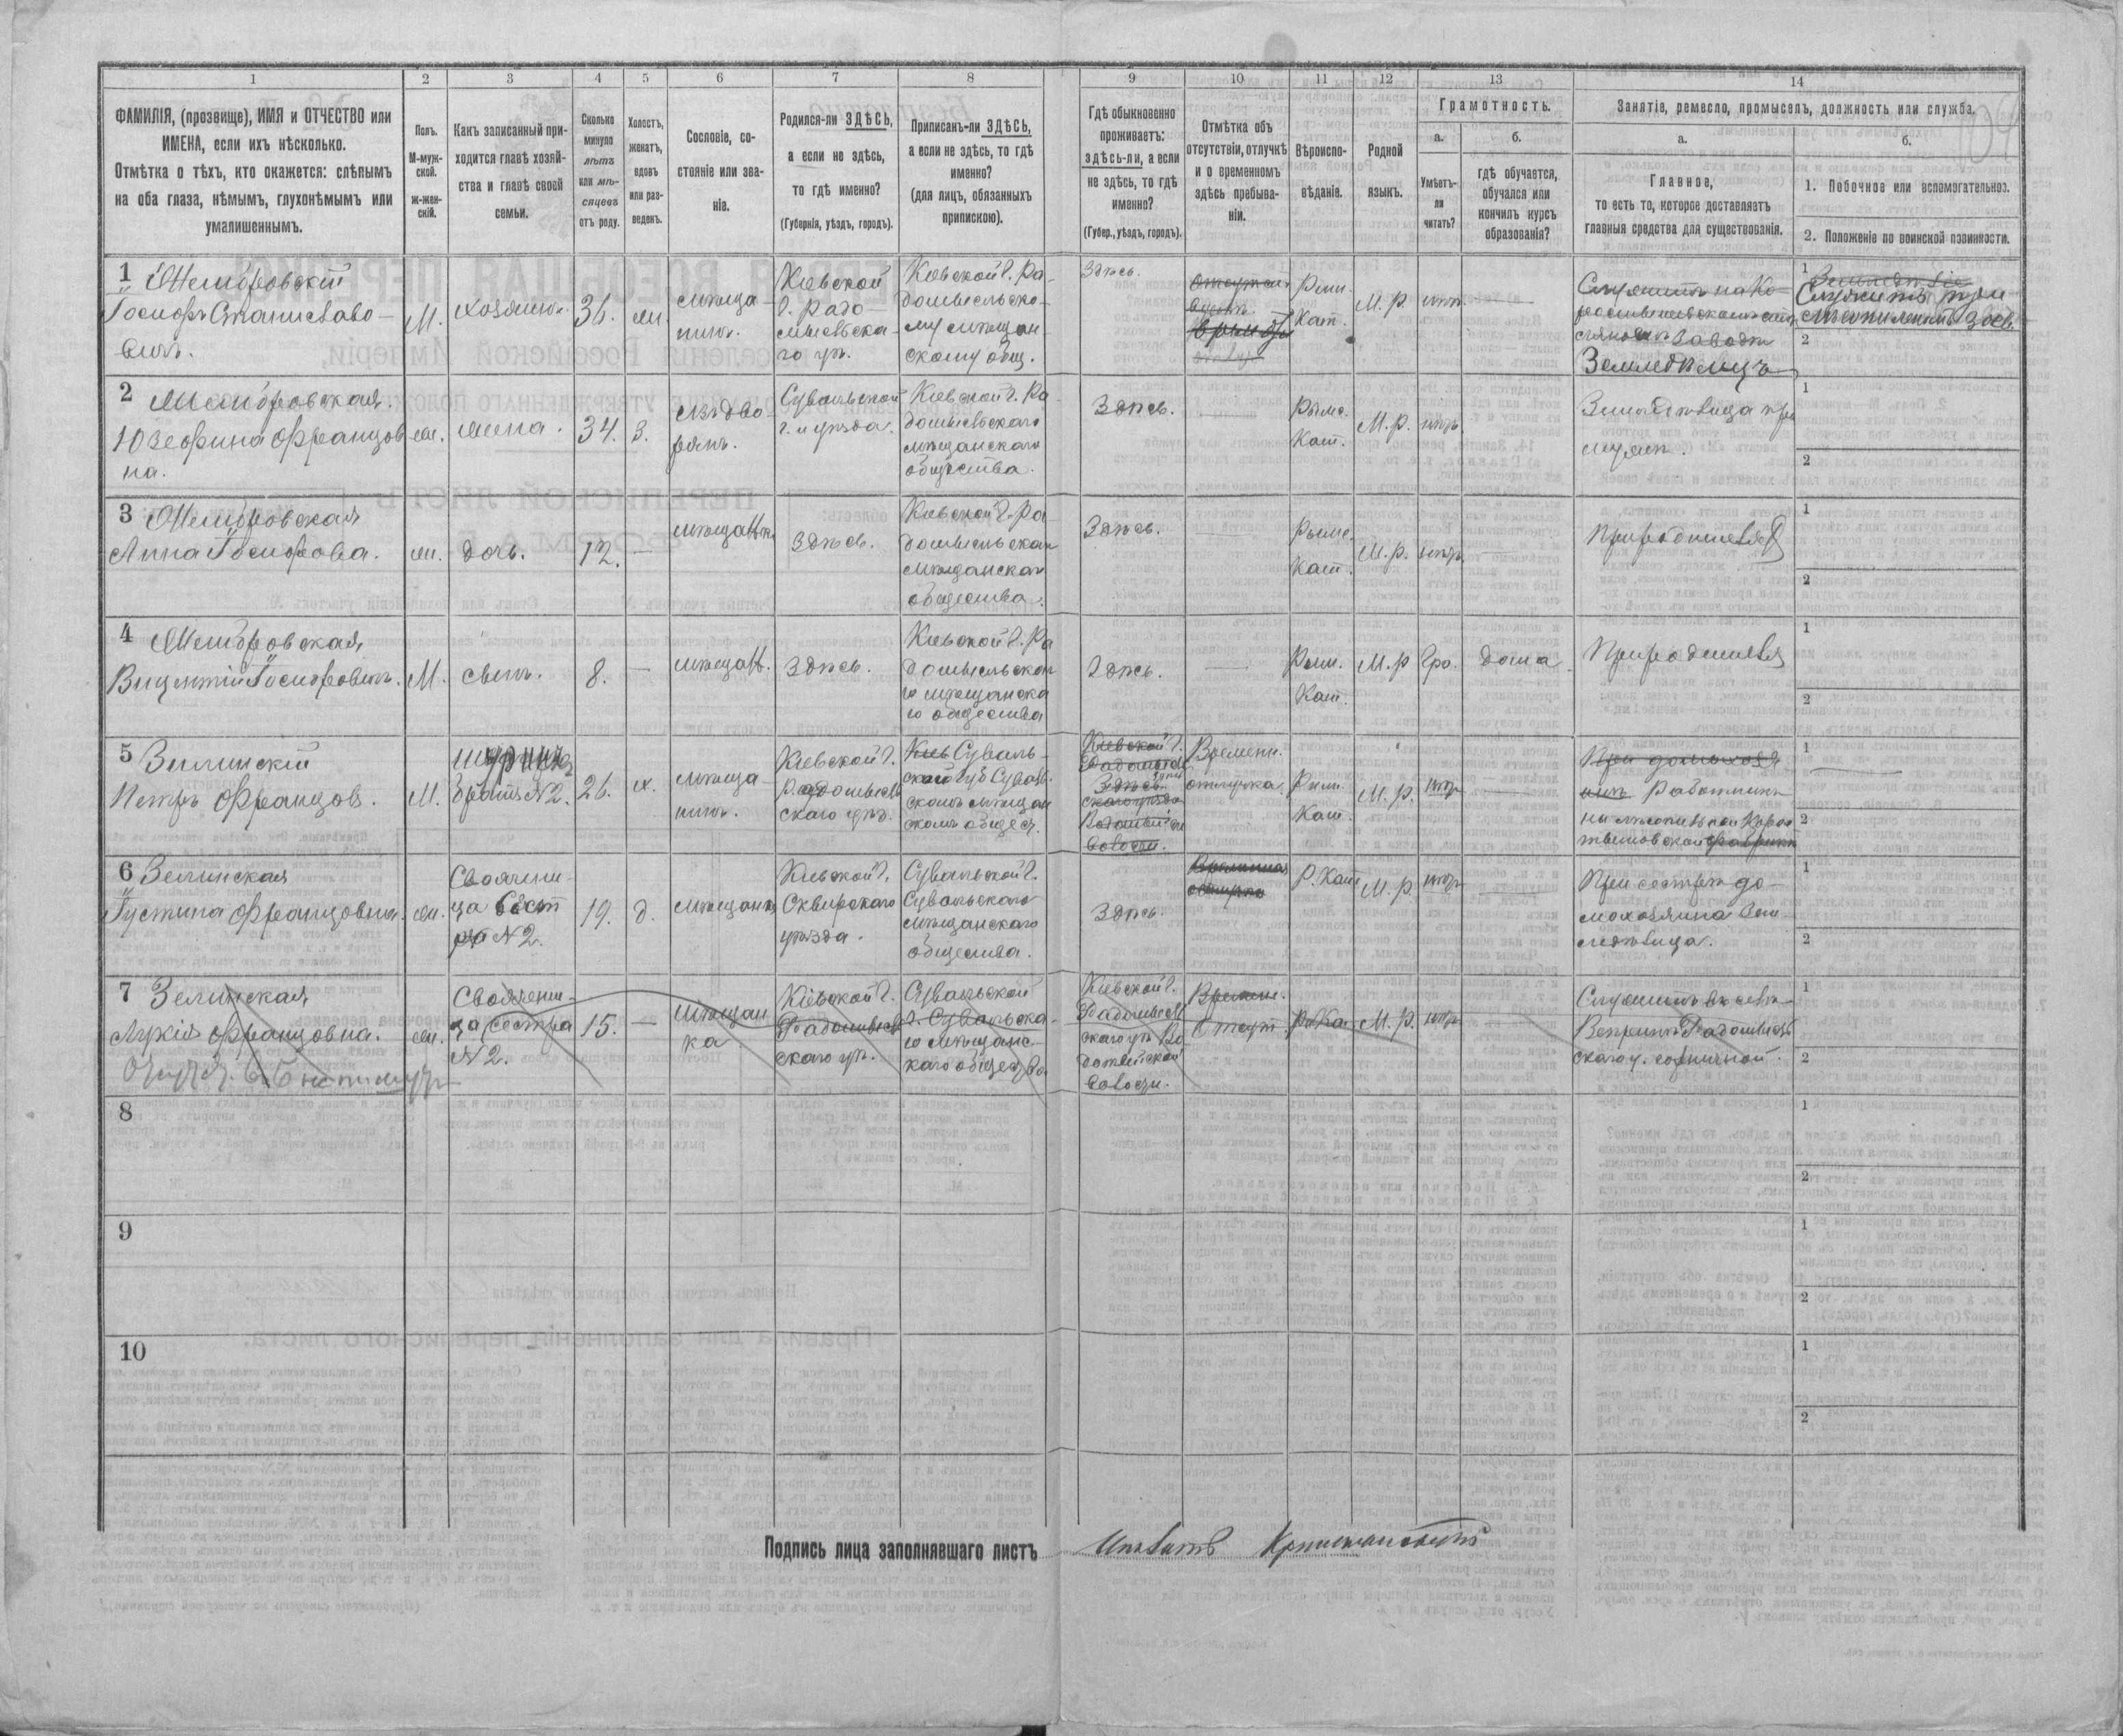 1 2 3 4 5 6 7 8 9 10 11 12 13 14
ФАМИЛІЯ, (прозвище), ИМЯ и ОТЧЕСТВО или
ИМЕНА, если ихъ нѣсколько.
Отмѣтка о тѣхъ, кто окажется: слѣпымъ
на оба глаза, нѣмымъ, глухонѣмымъ или
умалишеннымъ.
Полъ.
М-муж-
ской.
ж-жен-
скій.
Какъ записанный при-
ходится главѣ хозяй-
ства и главѣ своей
семьи.
Сколько
минуло
лѣтъ
или мѣ-
сяцевъ
отъ роду.
Холостъ,
женатъ,
вдовъ
или раз-
веденъ.
Сословіе, со-
стояніе или зва-
ніе.
Родился-ли ЗДѢСЬ,
а если не здѣсь,
то гдѣ именно?
(Губернія, уѣздъ, городъ).
Приписанъ-ли ЗДѢСЬ,
а если не здѣсь, то гдѣ
именно?
(для лицъ, обязанныхъ
припискою).
Гдѣ обыкновенно
проживаетъ:
здѣсь-ли, а если
не здѣсь, то гдѣ
именно?
(Губер., уѣздъ, городъ).
Отмѣтка объ
отсутствіи, отлучкѣ
и о временномъ
здѣсь пребыва-
ніи.
Вѣроиспо-
вѣданіе.
Родной
языкъ.
Грамотность.
а.
Умѣетъ-
ли
читать?
б.
гдѣ обучается,
обучался или
кончилъ курсъ
образованія?
Занятіе, ремесло, промыселъ, должность или служба.
а.
Главное,
то есть то, которое доставляетъ
главныя средства для существованія.
б.
1. Побочное или вспомогательное.
2. Положеніе по воинской повинности.
1
Іосифъ Станиславо-
вичъ.
М.
хозяинъ.
36.
жн.
мѣща-
нинъ.
Кіевской
г. Радо-
мысльска-
го уѣ.
Кіевской г. Ра-
домысльско-
му мѣщан-
скому общ.
Здѣсь.
Рим.
Кат.
М. р.
нѣтъ.
Служитъ на Ко-
заводѣ
Земледѣлецъ
1
Земледѣліе
Служитъ при
2
2
Юзефина Францов
на.
жн.
жена.
34.
З.
изъ дво-
рянъ.
Сувальской
г. и уѣзда.
Кіевской г. Ра-
домысльскаго
мѣщанскаго
общества.
Здѣсь.
Римс.
Кат.
М. р.
нѣтъ.
Земледѣлица при
мужѣ.
1
2
3
Анна Іосифова.
жн.
дочь.
12.
мѣщанка
Здѣсь.
Кіевской г. Ра-
домысльскаго
мѣщанскаго
общества.
Здѣсь.
Римс.
Кат.
М. р.
нѣтъ.
При родителяхъ
1
2
4
Викентій Іосифовичъ.
М.
сынъ.
8.
мѣщан.
Здѣсь.
Кіевской г. Ра
домысльска
го мѣщанска
го общества
Здѣсь.
Рим.
Кат.
М. р
Гра.
дома.
При родителяхъ
1
2
5 Зелинскій
Петръ Францов.
М.
шуринъ
братъ №2.
26.
х.
мѣща-
нинъ.
Кіевской г.
Радомысль
скаго уѣз.
Кіев Суваль-
ской Губ Суваль
скомъ мѣщан
скомъ общес.
Кіевской г.
Здѣсь
волости.
Времени.
отлучка.
Рим.
Кат.
М. р.
нѣтъ
При домохозя
инѣ Работникъ
1
2
6 Зелинская
Юстина Францовна.
жн.
Своячени-
ца сест
ра №2.
19.
д.
мѣщанка
Кіевской г.
Сквирскаго
уѣзда.
Сувальской г.
Сувальскаго
мѣщанскаго
общества.
Здѣсь.
Временная
отлучка
Р. Кат
М. р.
нѣтъ
При сестрѣ до-
мохозяина Зем-
ледѣлица.
1
2
7 Зелинская
Францовна.
жн.
Своячени-
ца сестра
№2.
15.
мѣщан
ка
Кіевской г.
Радомысль
скаго уѣ.
Сувальской
г. Сувальска-
го мѣщанс-
каго общества
Кіевской г.
Радомысль
скаго уѣ Во
волости.
Времен.
Отсут.
Р. Ка.
М. р.
нѣтъ
Служитъ въ селѣ
Вепринѣ Радомысль
скаго у. горничной.
1
2
8
1
2
9
1
2
10
1
2
Подпись лица заполнявшаго листъ